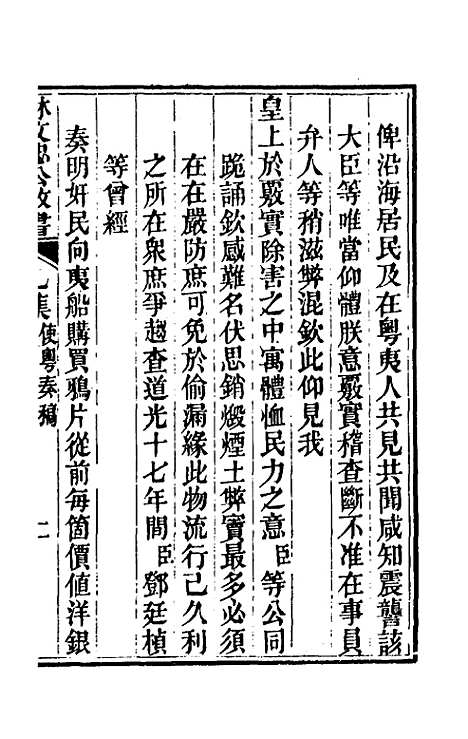 俾沿海居民及在粵夷人共見共聞咸知震讋該
大臣等唯當仰體朕意覈實稽查斷不准在事員
弁人等稍滋弊混欽此仰見我
皇上於覈實除害之中寓體恤民力之意臣等公同
跪誦欽感難名伏思銷燬煙土弊竇最多必須
在在嚴防庶可免於偷漏緣此物流行已久利
之所在衆庶爭趨查道光十七年間臣鄧廷楨
等曾經
奏明奸民向夷船購買鴉片從前每箇價値洋銀
林文忠公政書
集使粵奏稿
二